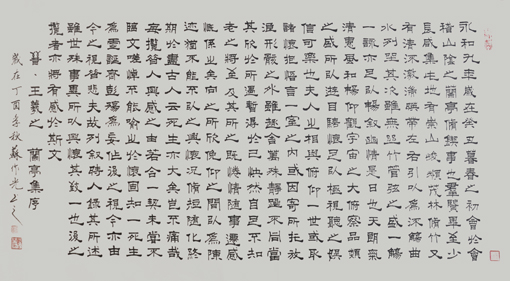 永和九年歲在癸丑暮春之初會於會
稽山陰之蘭亭脩禊事也羣賢畢至少
長咸集此地有崇山峻領茂林脩竹又
有清流激湍映帶左右引以為流觴曲
水列坐其次雖無絲竹管弦之盛一觴
一詠亦足以暢敘幽情是日也天朗氣
清惠風和暢仰觀宇宙之大俯察品類
之盛所以遊目騁懷足以極視聽之娛
信可樂也夫人之相與俯仰一世或取
諸懷抱悟言一室之內或因寄所託放
浪形骸之外雖趣舍萬殊靜躁不同當
其欣於所遇暫得於己快然自足不知
老之將至及其所之既惓情隨事遷感
慨係之矣向之所欣俛仰之間以為陳
迹猶不能不以之興懷況脩短隨化終
期於盡古人云死生亦大矣豈不痛哉
每攬昔人興感之由若合一契未嘗不
臨文嗟悼不能喻之於懷固知一死生
為虛誕齊彭殤為妄作後之視今亦由
今之視昔悲夫故列敘時人錄其所述
雖世殊事異所以興懷其致一也後之
攬者亦將有感於斯文
晉·王羲之 蘭亭集序
歲在丁酉年秋蘇作光書之